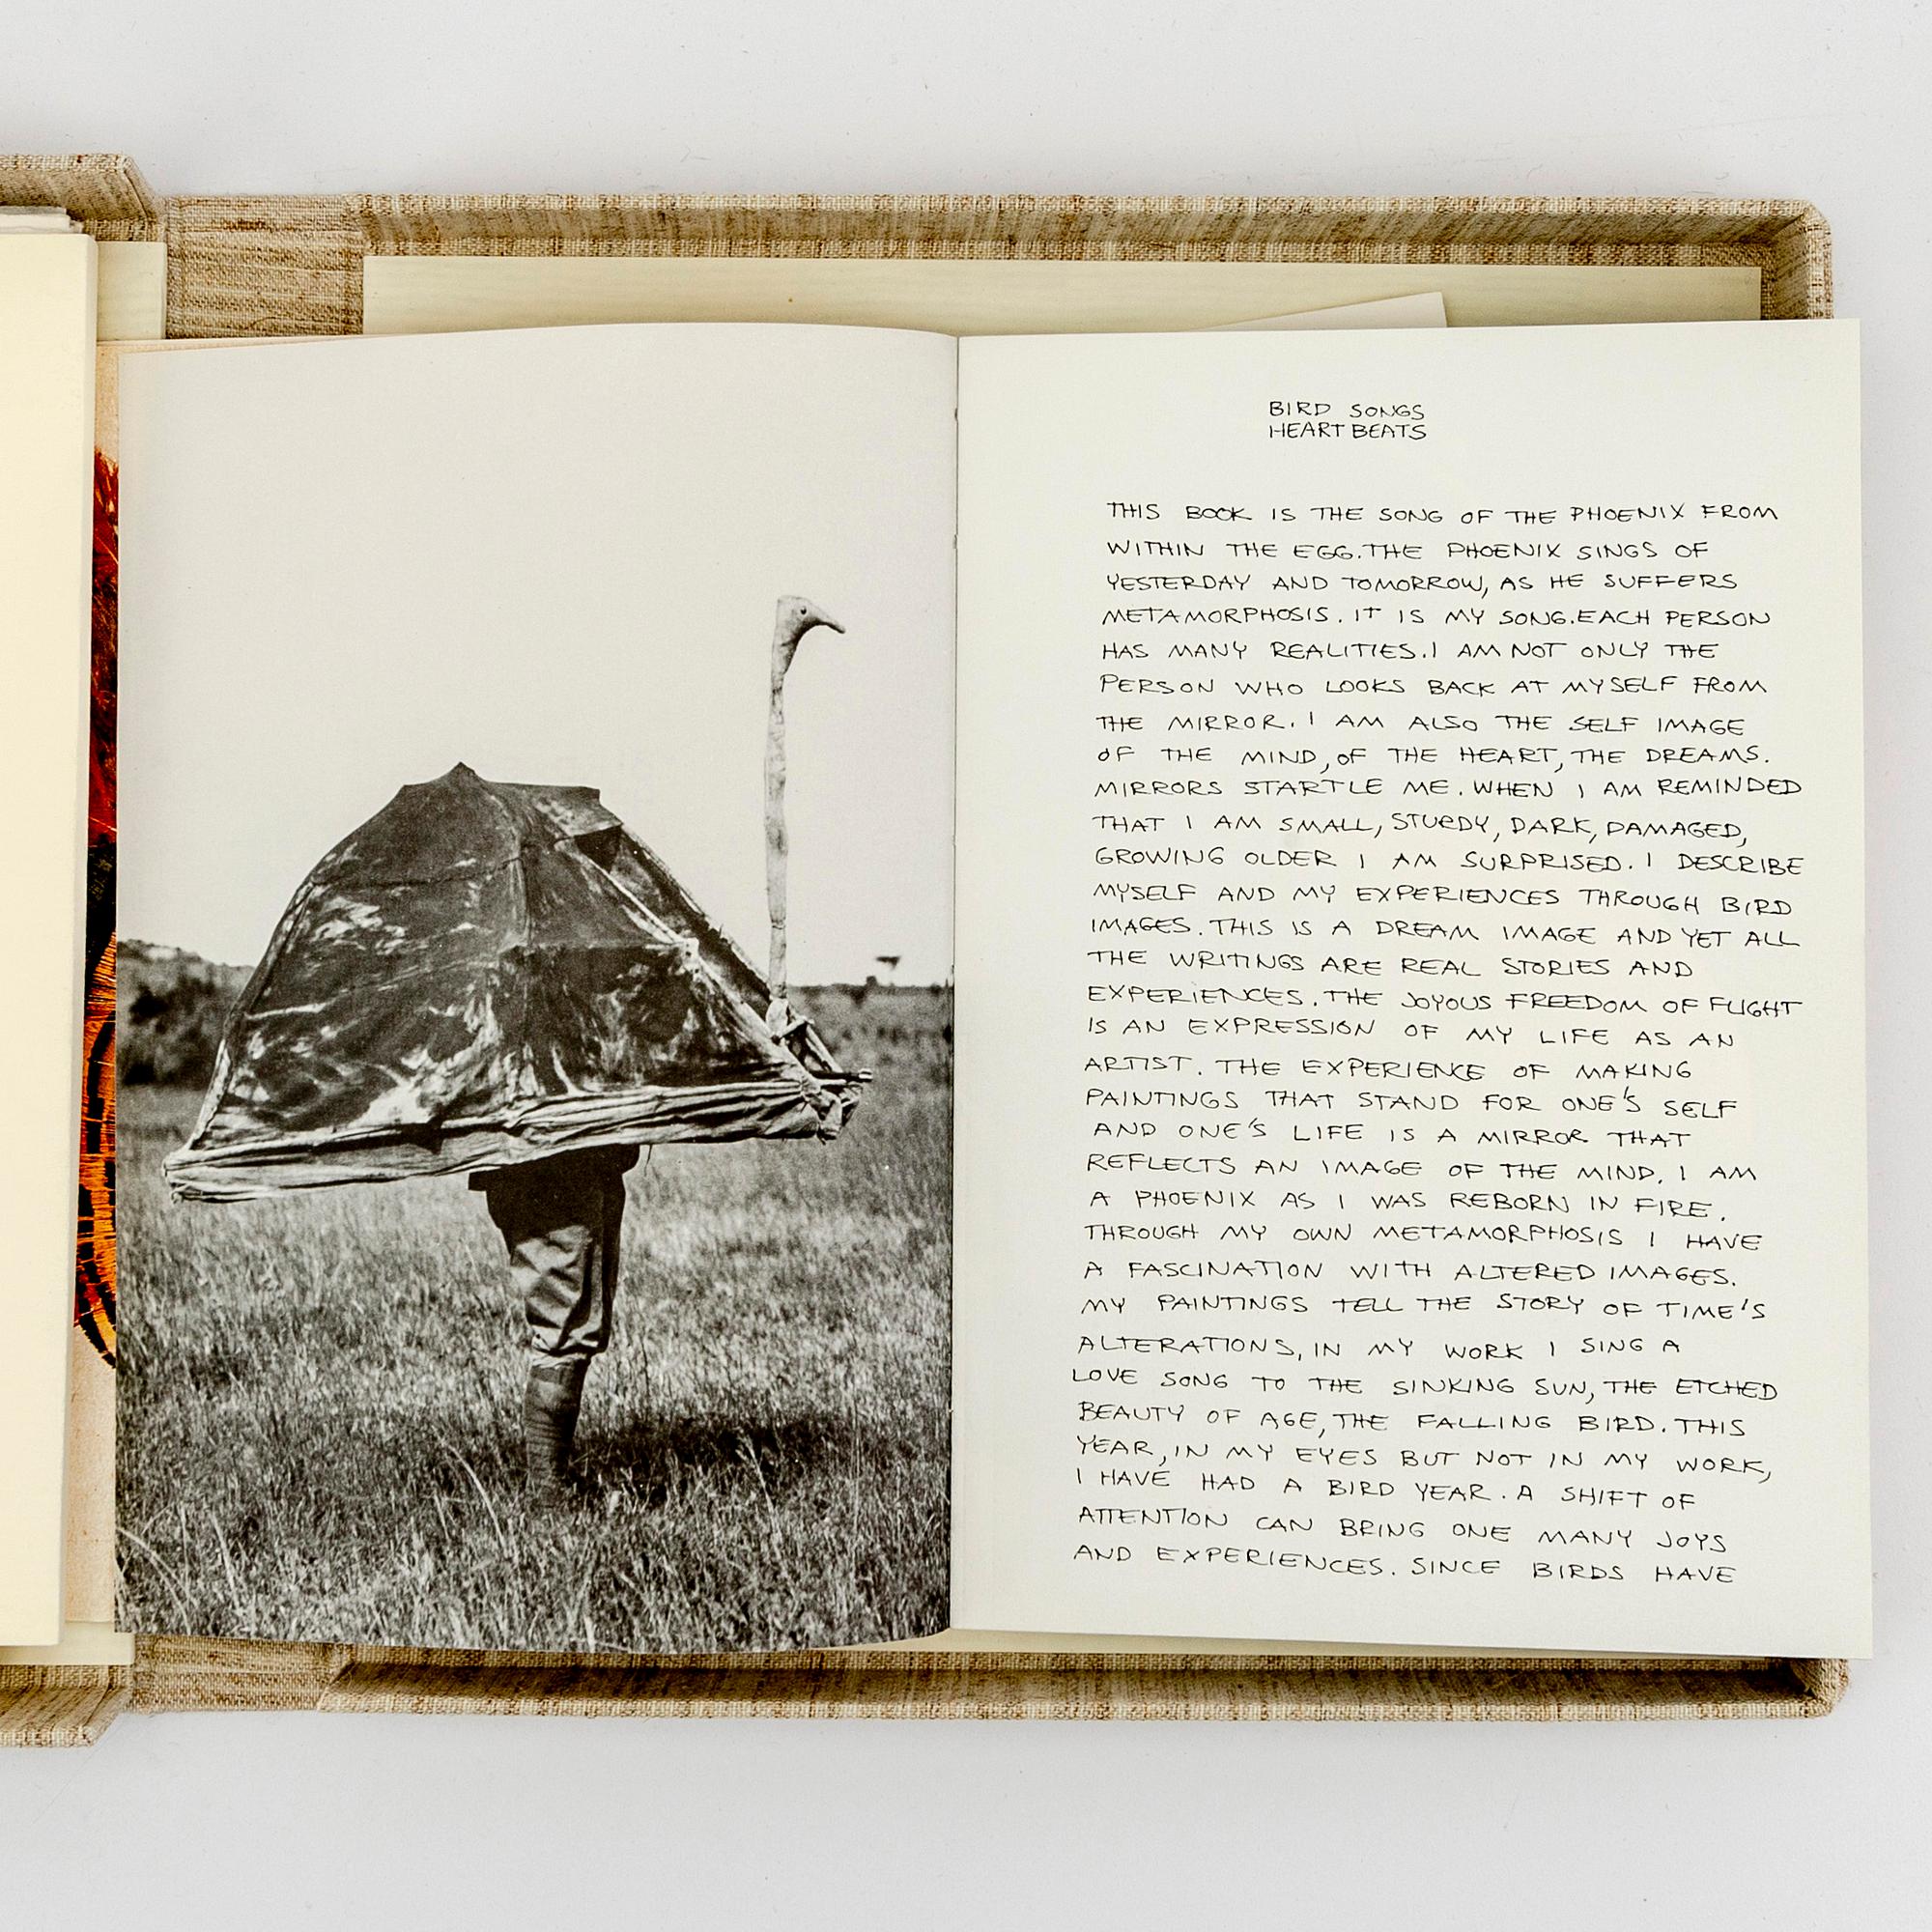 BIRD SONGS
HEART BEATS
THIS BOOK IS THE SONG OF THE PHOENIX FROM
WITHIN THE EGG. THE PHOENIX SINGS OF
YESTERDAY AND TOMORROW, AS HE SUFFERS
METAMORPHOSIS. IT IS MY SONG. EACH PERSON
HAS MANY REALITIES. I AM NOT ONLY THE
PERSON WHO LOOKS BACK AT MYSELF FROM
THE MIRROR. I AM ALSO THE SELF IMAGE
OF THE MIND, OF THE HEART, THE DREAMS.
MIRRORS STARTLE ME. WHEN I AM REMINDED
THAT I AM SMALL, STURDY, DARK, DAMAGED,
GROWING OLDER I AM SURPRISED. I DESCRIBE
MYSELF AND MY EXPERIENCES THROUGH BIRD
IMAGES. THIS IS A DREAM IMAGE AND YET ALL
THE WRITINGS ARE REAL STORIES AND
EXPERIENCES. THE JOYOUS FREEDOM OF FLIGHT
IS AN EXPRESSION OF MY LIFE AS AN
ARTIST. THE EXPERIENCE OF MAKING
PAINTINGS THAT STAND FOR ONE'S SELF
AND ONE'S LIFE IS A MIRROR THAT
REFLECTS AN IMAGE OF THE MIND. I AM
A PHOENIX AS I WAS REBORN IN FIRE.
THROUGH MY OWN METAMORPHOSIS I HAVE
A FASCINATION WITH ALTERED IMAGES.
MY PAINTINGS TELL THE STORY OF TIME'S
ALTERATIONS, IN MY WORK I SING A
LOVE SONG TO THE SINKING SUN, THE ETCHED
BEAUTY OF AGE, THE FALLING BIRD. THIS
YEAR, IN MY EYES BUT NOT IN MY WORK,
I HAVE HAD A BIRD YEAR. A SHIFT OF
ATTENTION CAN BRING ONE MANY JOYS
AND EXPERIENCES. SINCE BIRDS HAVE